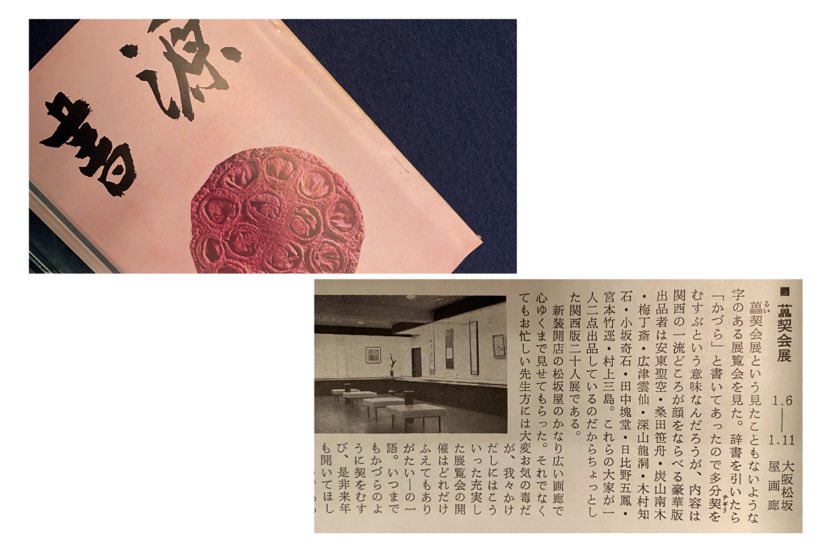 書源
■ 藟契会展 1.6——1.11 大阪松坂屋画廊
藟契会展という見たこともないような
字のある展覧会を見た。辞書を引いたら
「かづら」と書いてあったので多分契を
むすぶという意味なんだろうが、内容は
関西の一流どころが顔をならべる豪華版
出品者は安東聖空・桑田笹舟・炭山南木
・梅丁斎・広津雲仙・深山龍洞・木村知
石・小坂奇石・田中塊堂・日比野五鳳・
宮本竹逕・村上三島。これらの大家が一
人二点出品しているのだからちょっとし
た関西版二十人展である。
新装開店の松坂屋のかなり広い画廊で
心ゆくまで見せてもらった。それでなく
てもお忙しい先生方には大変お気の毒だ
が、我々かけ
だしにはこう
いった充実し
た展覧会の開
催はどれだけ
ふえてもあり
がたい―の一
語。いつまで
もかづらのよ
うに契をむす
び、是非来年
も開いてほし